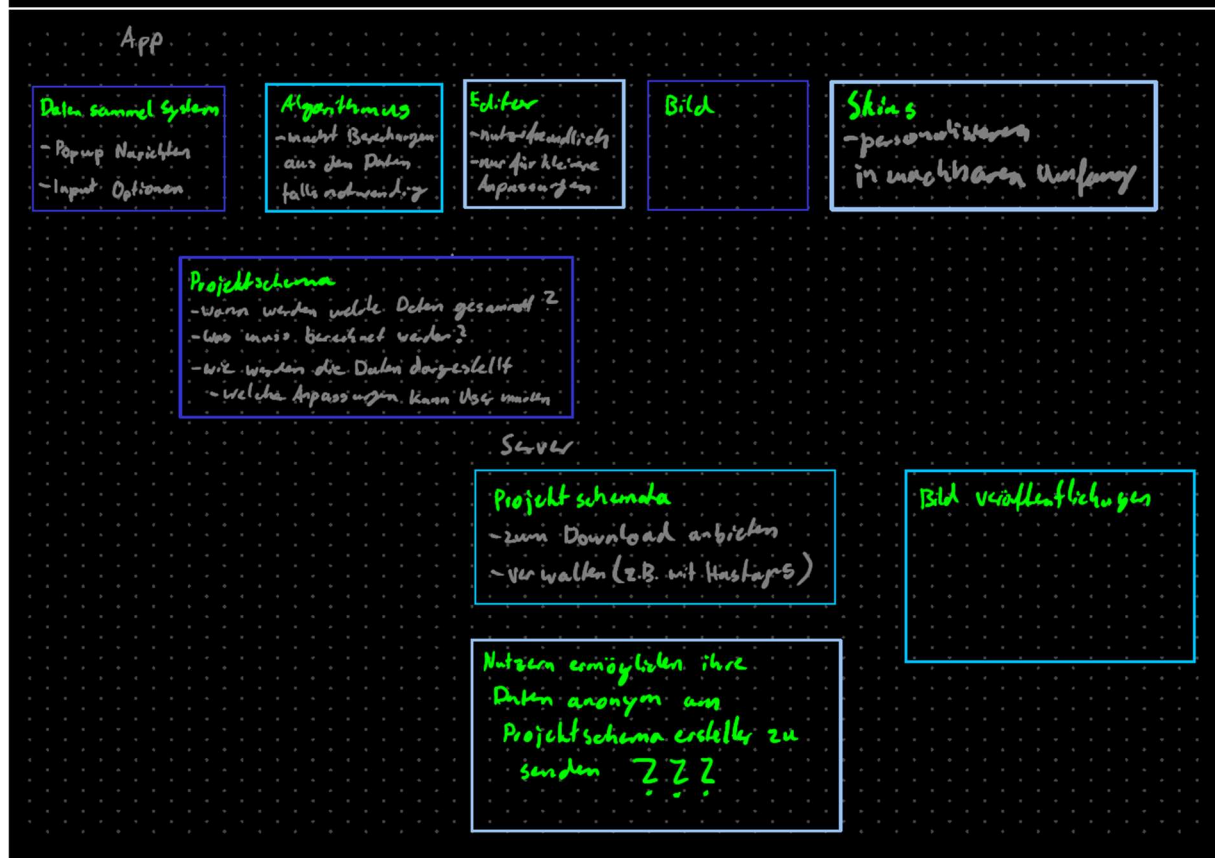 App
Daten sammel System
- Popup Narichten
- Input Optionen
Algorithmus
- macht Berechungen
aus den Daten
falls notwendig
Editor
- nutzerfreundlich
- nur für kleine
Anpassungen
Bild
Skins
- personalisieren
in machbaren Umfang
Projektschema
- wann werden welche Daten gesammelt?
- was muss berechnet werden?
- wie werden die Daten dargestellt
- welche Anpassungen kann User machen
Server
Projektschemata
- zum Download anbieten
- verwalten (z.B. mit Hastags)
Bild veröffentlichungen
Nutzern ermöglichen ihre
Daten anonym am
Projektschema ersteller zu
senden ???